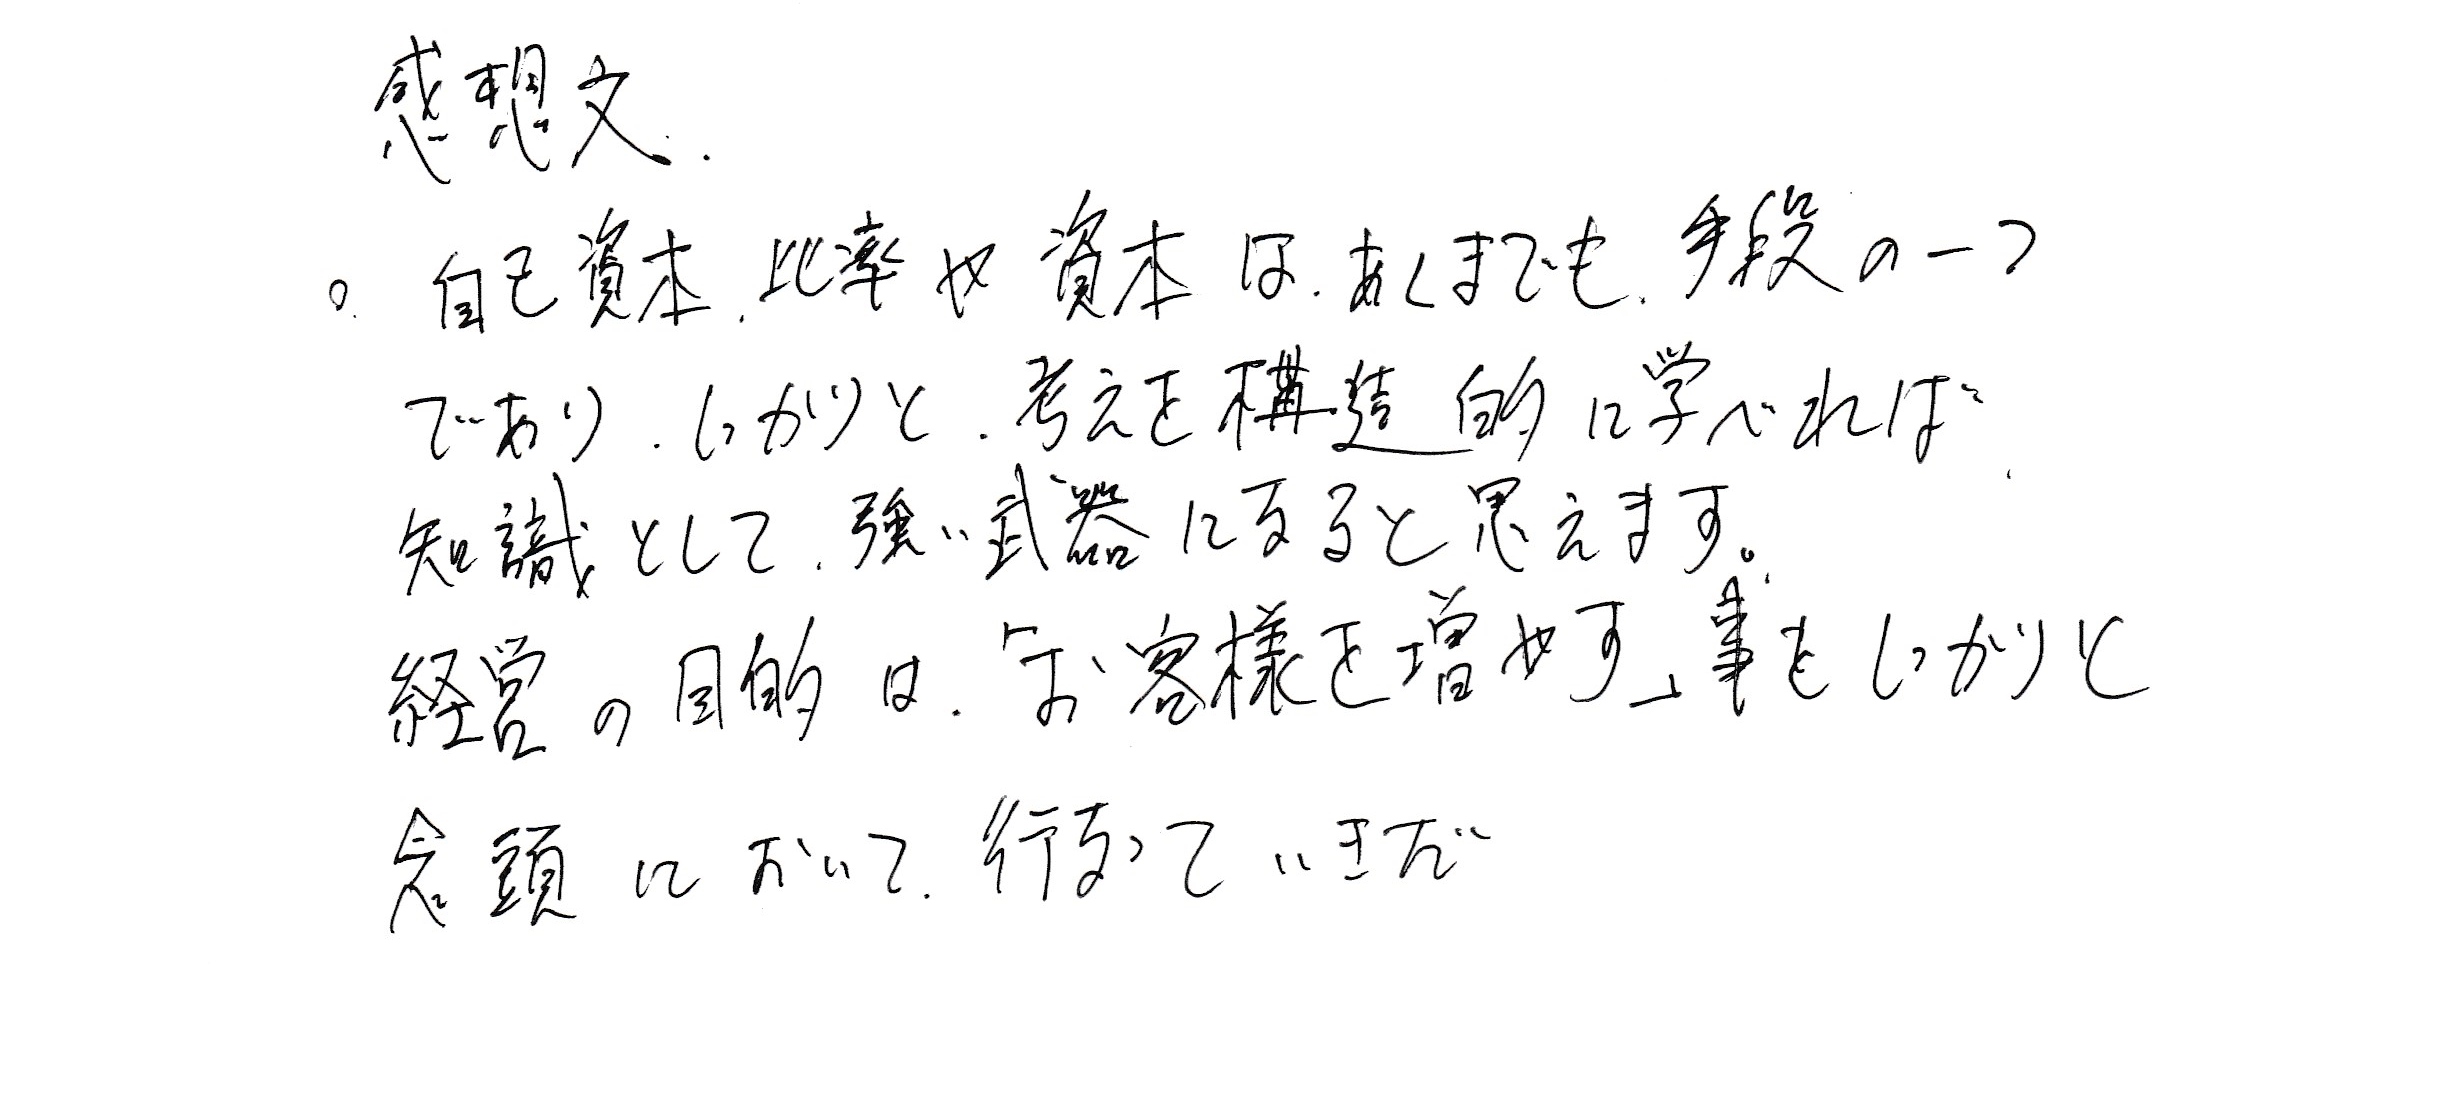 感想文.
○. 自己資本.比率や資本は.あくまでも.手段の一つ
であり.しっかりと.考えを構造的に学べれば
知識として.強い武器になると思えます。
経営の目的は.「お客様を増やす」事をしっかりと
念頭において.行なっていきだ